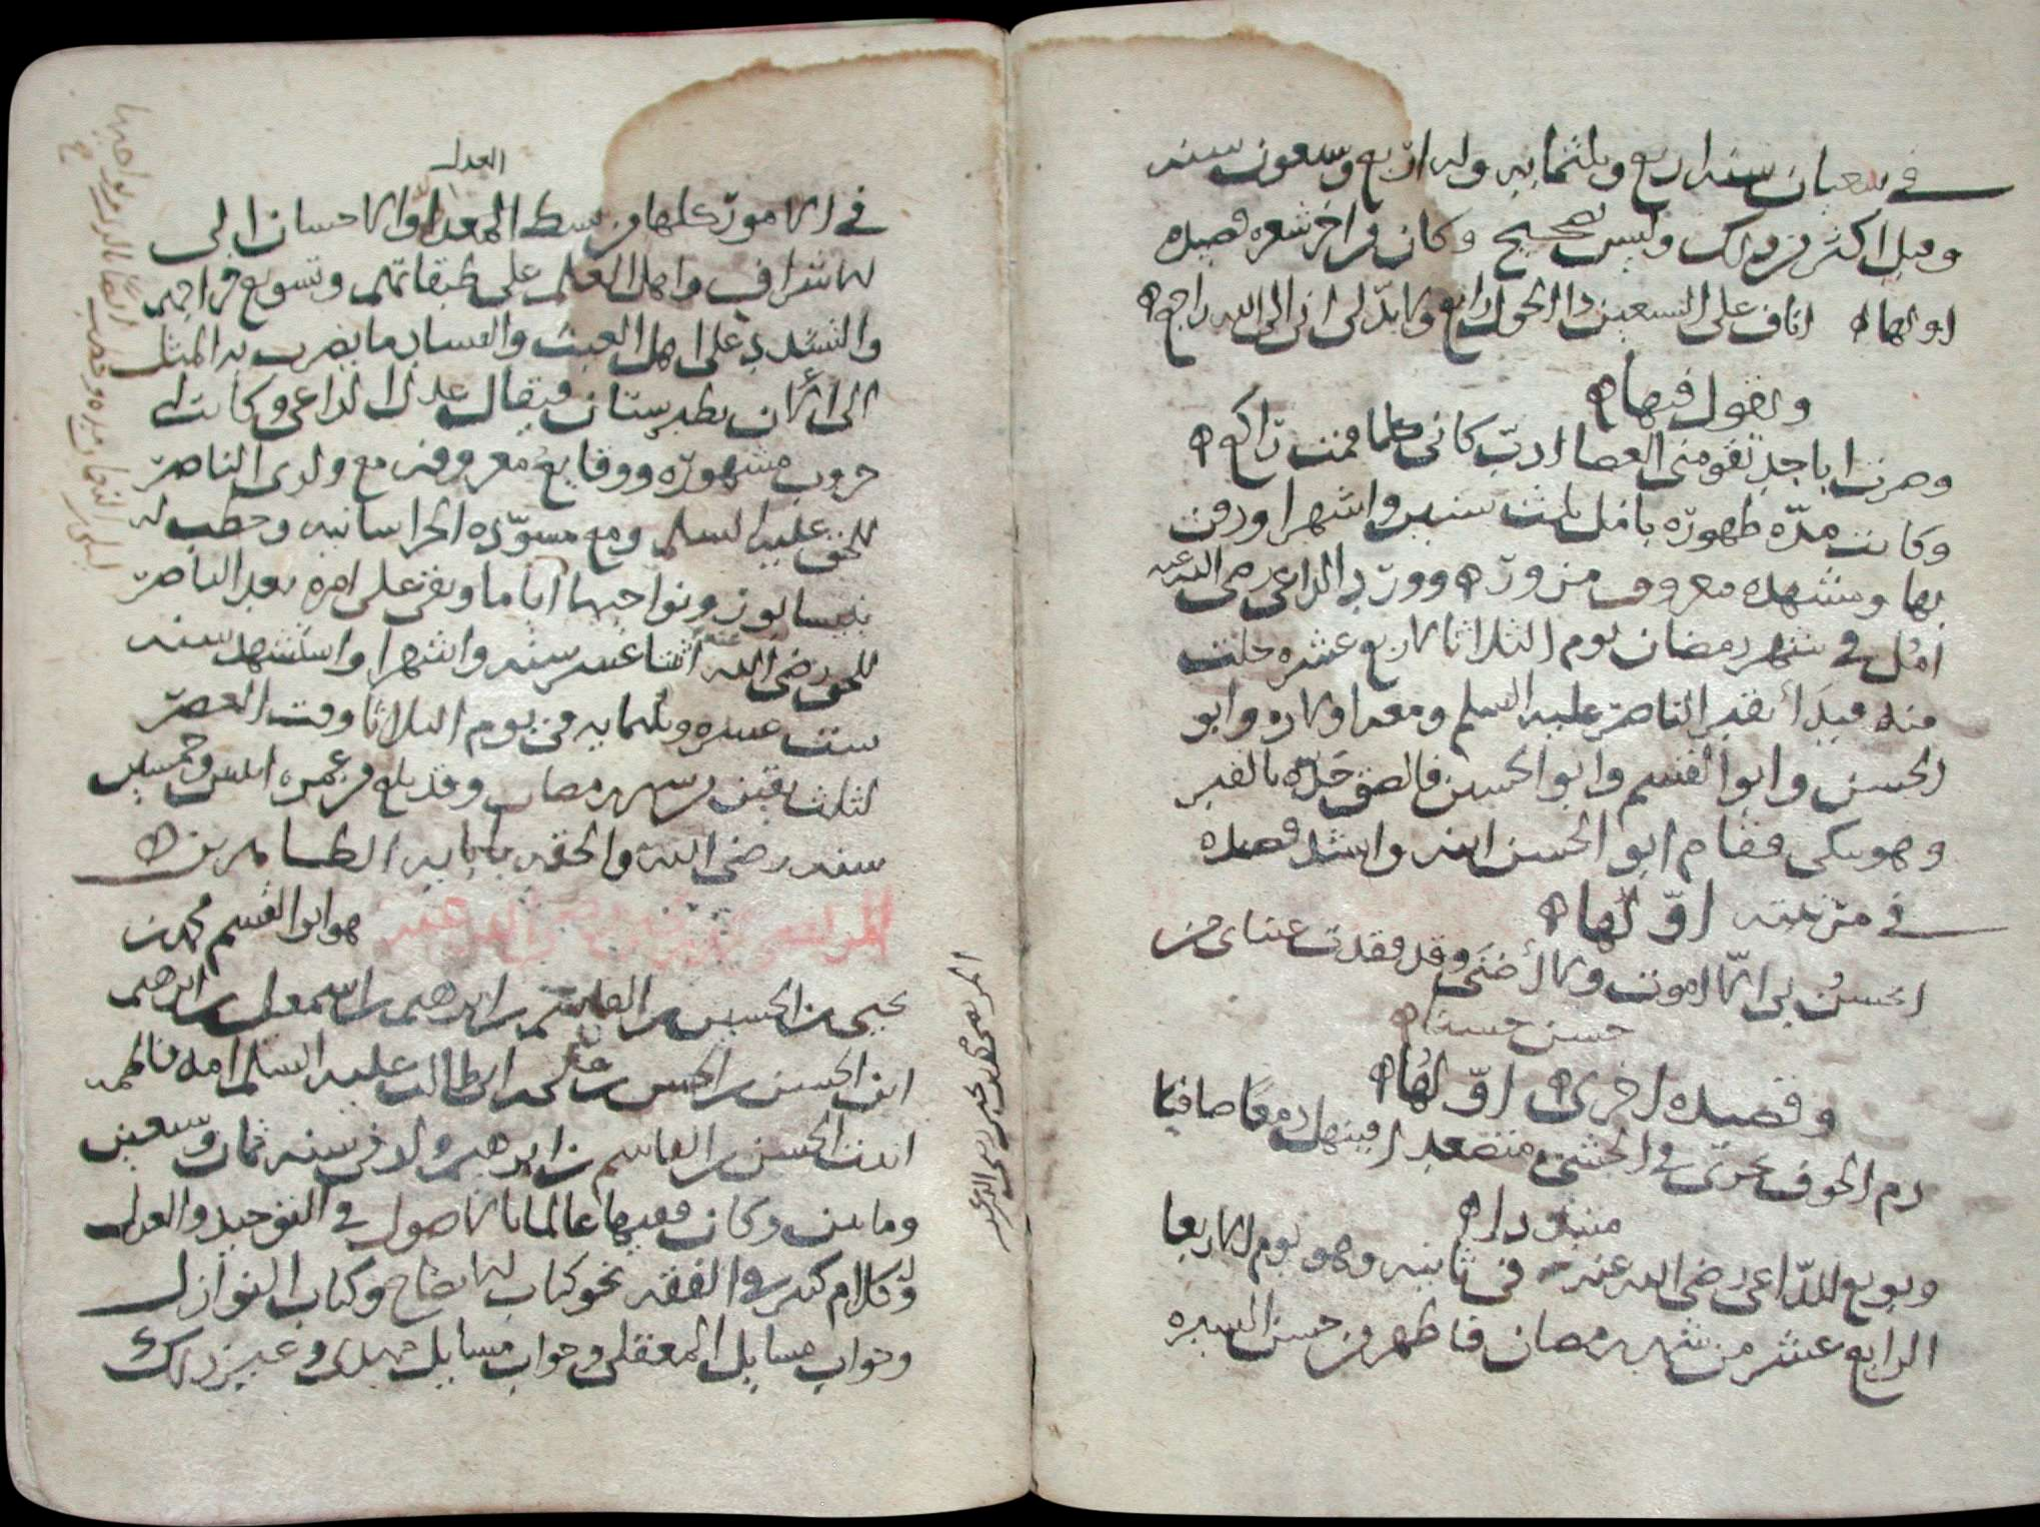 في شعبان سنه اربع وثلثمايه وله اربع وسبعون سنه
وقيل اكثر من ذلك وليس بصحيح وكان من اخر شعره قصيده
اولها اناف على السبعين ذا الحول رابع ولا بد لي اني الى الله راجع
ويقول فيها
وصرت ابا جد تقومني العصا ادب كاني كلما قمت راكع
وكانت مده ظهوره بامل ثلث سنين واشهرا ودفن
بها ومشهده معروف مزور وورد الداعي رضي الله عنه
امل في شهر رمضان يوم الثلاثا لاربع عشره خلت
منه فبدأ بقبر الناصر عليه السلم ومعه اولاده وابو
الحسن وابو القسم وابو الحسين فالصق خده بالقبر
وهو يبكي فقام ابو الحسن ابنه وانشد قصيده
في مرثيته اوّلها
ايحسن بي الّا اموت ولا أضنى وقد فقدت عيناي من
حسن حسنا
وقصيده اخرى اوّلها
دم الجوف يجري في الحشى متصعدا فينهل دمعا صافيا
متبددا
وبويع للدّاعي رضي الله عنه في ثانيه وهو يوم الاربعا
الرابع عشر من شهر رمضان فاظهر من حسن السيره
العدل
في الامور كلها من بسط المعدله والاحسان الى
الاشراف واهل العلم على طبقاتهم وتسويغ خراجهم
والتشديد على اهل العبث والفساد ما يضرب به المثل
الى الان بطبرستان فيقال عدل الداعي وكانت له
حروب مشهوره ووقايع معروفه مع ولدي الناصر
للحق عليه السلم ومع مسوّده الخراسانيه وخطب له
بنيسابور ونواحيها اياما وبقي على امره بعد الناصر
للحق رضي الله عنه اثنا عشر سنه واشهرا واستشهد سنه
ست عشره وثلثمايه في يوم الثلاثا وقت العصر
لثلث بقين من شهر رمضان وقد بلغ من عمره اثنين وخمسين
سنه رضي الله والحقه بابايه الطاهرين
المرتضى محمد بن يحيى رضي الله عنه هو ابو القسم محمد بن
يحيى بن الحسين بن القاسم بن ابرهيم بن اسمعيل بن ابرهيم
ابن الحسن بن الحسن بن علي بن ابي طالب عليه السلم امه فاطمه
ابنت الحسن بن القاسم بن ابرهيم ولد في سنه ثمان وسبعين
ومايتين وكان فقيها عالما بالاصول في التوحيد والعدل
وله كلام كثير في الفقه نحو كتاب الايضاح وكتاب النوازل
وجواب مسايل المعقلي وجواب مسايل مهدي وغير ذلك
المرتضى محمد بن يحيى رضي الله عنه